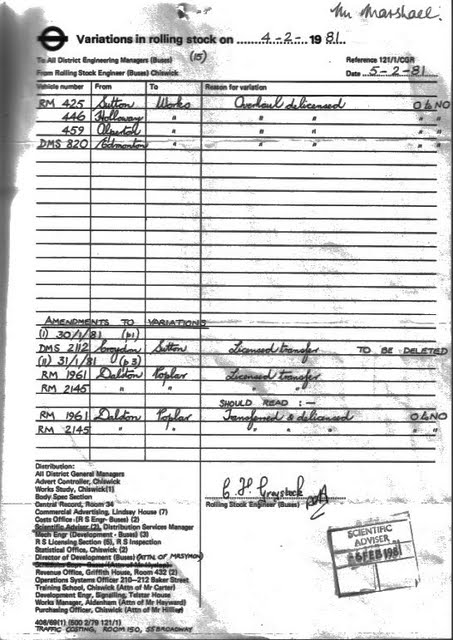 Mr Marshall.
Variations in rolling stock on 4-2- 1981.
(15)
To All District Engineering Managers (Buses) Reference 121/1/CGR
From Rolling Stock Engineer (Buses) Chiswick Date 5-2-81
Vehicle number From To Reason for variation
RM 425 Sutton Works Overhaul delicensed O L NO
446 Holloway " " " " "
459 Alperton " " " " "
DMS 820 Edmonton " " " " "
AMENDMENTS TO VARIATIONS
(I) 30/1/81 (p1)
DMS 2112 Croydon Sutton Licensed transfer TO BE DELETED
(II) 31/1/81 (p3)
RM 1961 Dalston Poplar Licensed transfer
RM 2145 " " "
SHOULD READ :—
RM 1961 Dalston Poplar Transferred & delicensed O L NO
RM 2145 " " " " " " "
Distribution:
All District General Managers
Advert Controller, Chiswick
Works Study, Chiswick(1)
Body Spec Section
Central Record, Room 34
Commercial Advertising, Lindsay House (7)
Costs Office (R S Engr- Buses) (2)
Scientific Adviser (2), Distribution Services Manager
Mech Engr (Development - Buses) (3)
R S Licensing Section (6), R S Inspection
Statistical Office, Chiswick (2)
Director of Development (Buses)
Revenue Office, Griffith House, Room 432 (2)
Operations Systems Officer 210–212 Baker Street
Training School, Chiswick (Attn of Mr Carter)
Development Engr, Signalling, Telstar House
Works Manager, Aldenham (Attn of Mr Hayward)
Purchasing Officer, Chiswick (Attn of Mr Hillier)
408/69(1) (500 2/79 121/1)
TRAFFIC COSTING, ROOM 150, 55 BROADWAY
C H Greystock
Rolling Stock Engineer (Buses)
SCIENTIFIC
ADVISER
06 FEB 1981